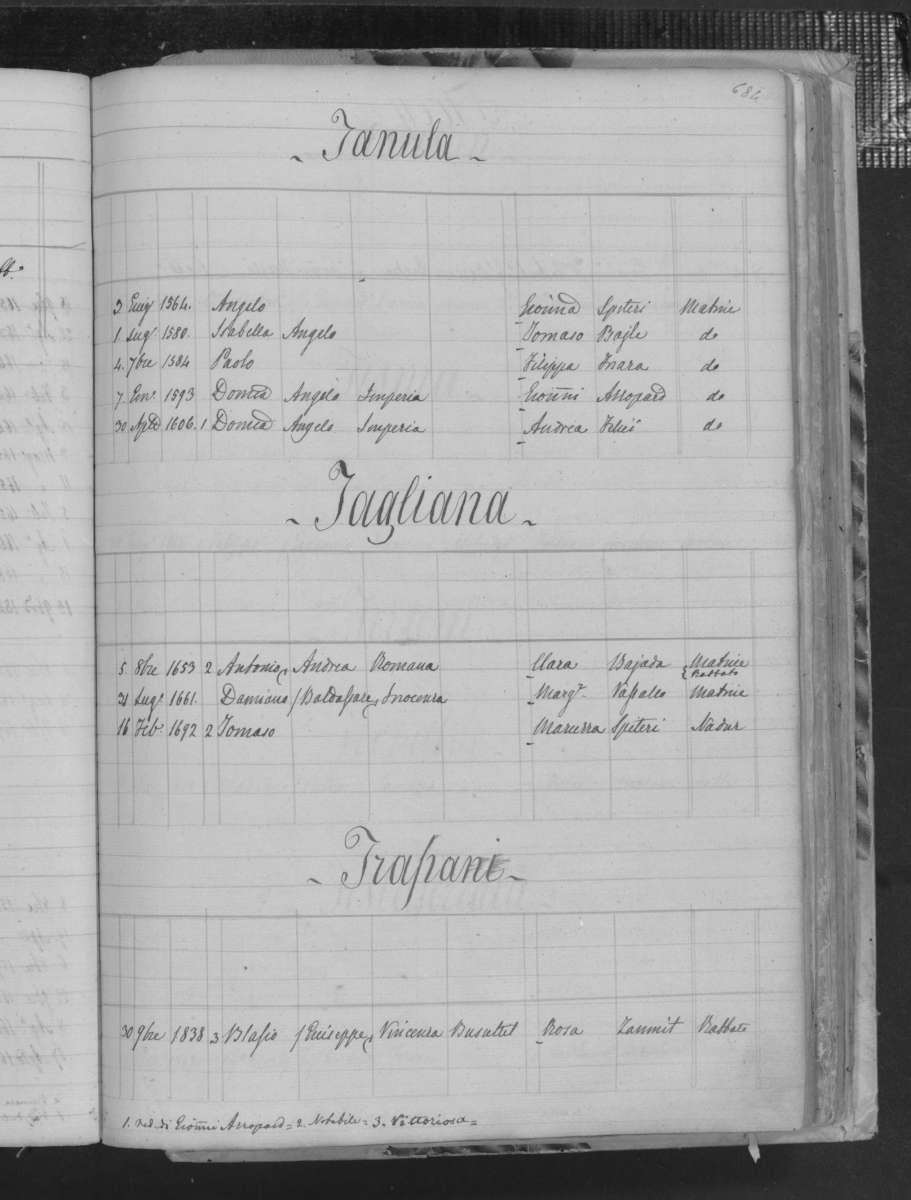 684
- Tanula -
2 Giug 1564. Angelo Gioñna Spiteri Matrice
1 Lugo 1580. Isabella Angelo Tomaso Bajle do
4. 7bre 1584 Paolo Filippa Inara do
7. Gen. 1593 Domca Angelo Imperia Gioñni Assopard do
30. Aple 1606. 1 Domca Angelo Imperia Andrea do
- Tagliana -
5 8bre 1653 2 Antonio Andrea Romana Clara Bajada Matrice Rabbato
31 Lugo 1661. Damiano / Baldassare Inocenza Margta Vassallo Matrice
16 Feb. 1692 2 Tomaso Maruzza Spiteri Nadur
- Trapani -
30 9bre 1838 3 Blasio / Giuseppe Vincenza Busuttil Rosa Zammit Rabbato
1. ved. di Gioñni Assopard = 2. Notabile = 3. Vittoriosa =